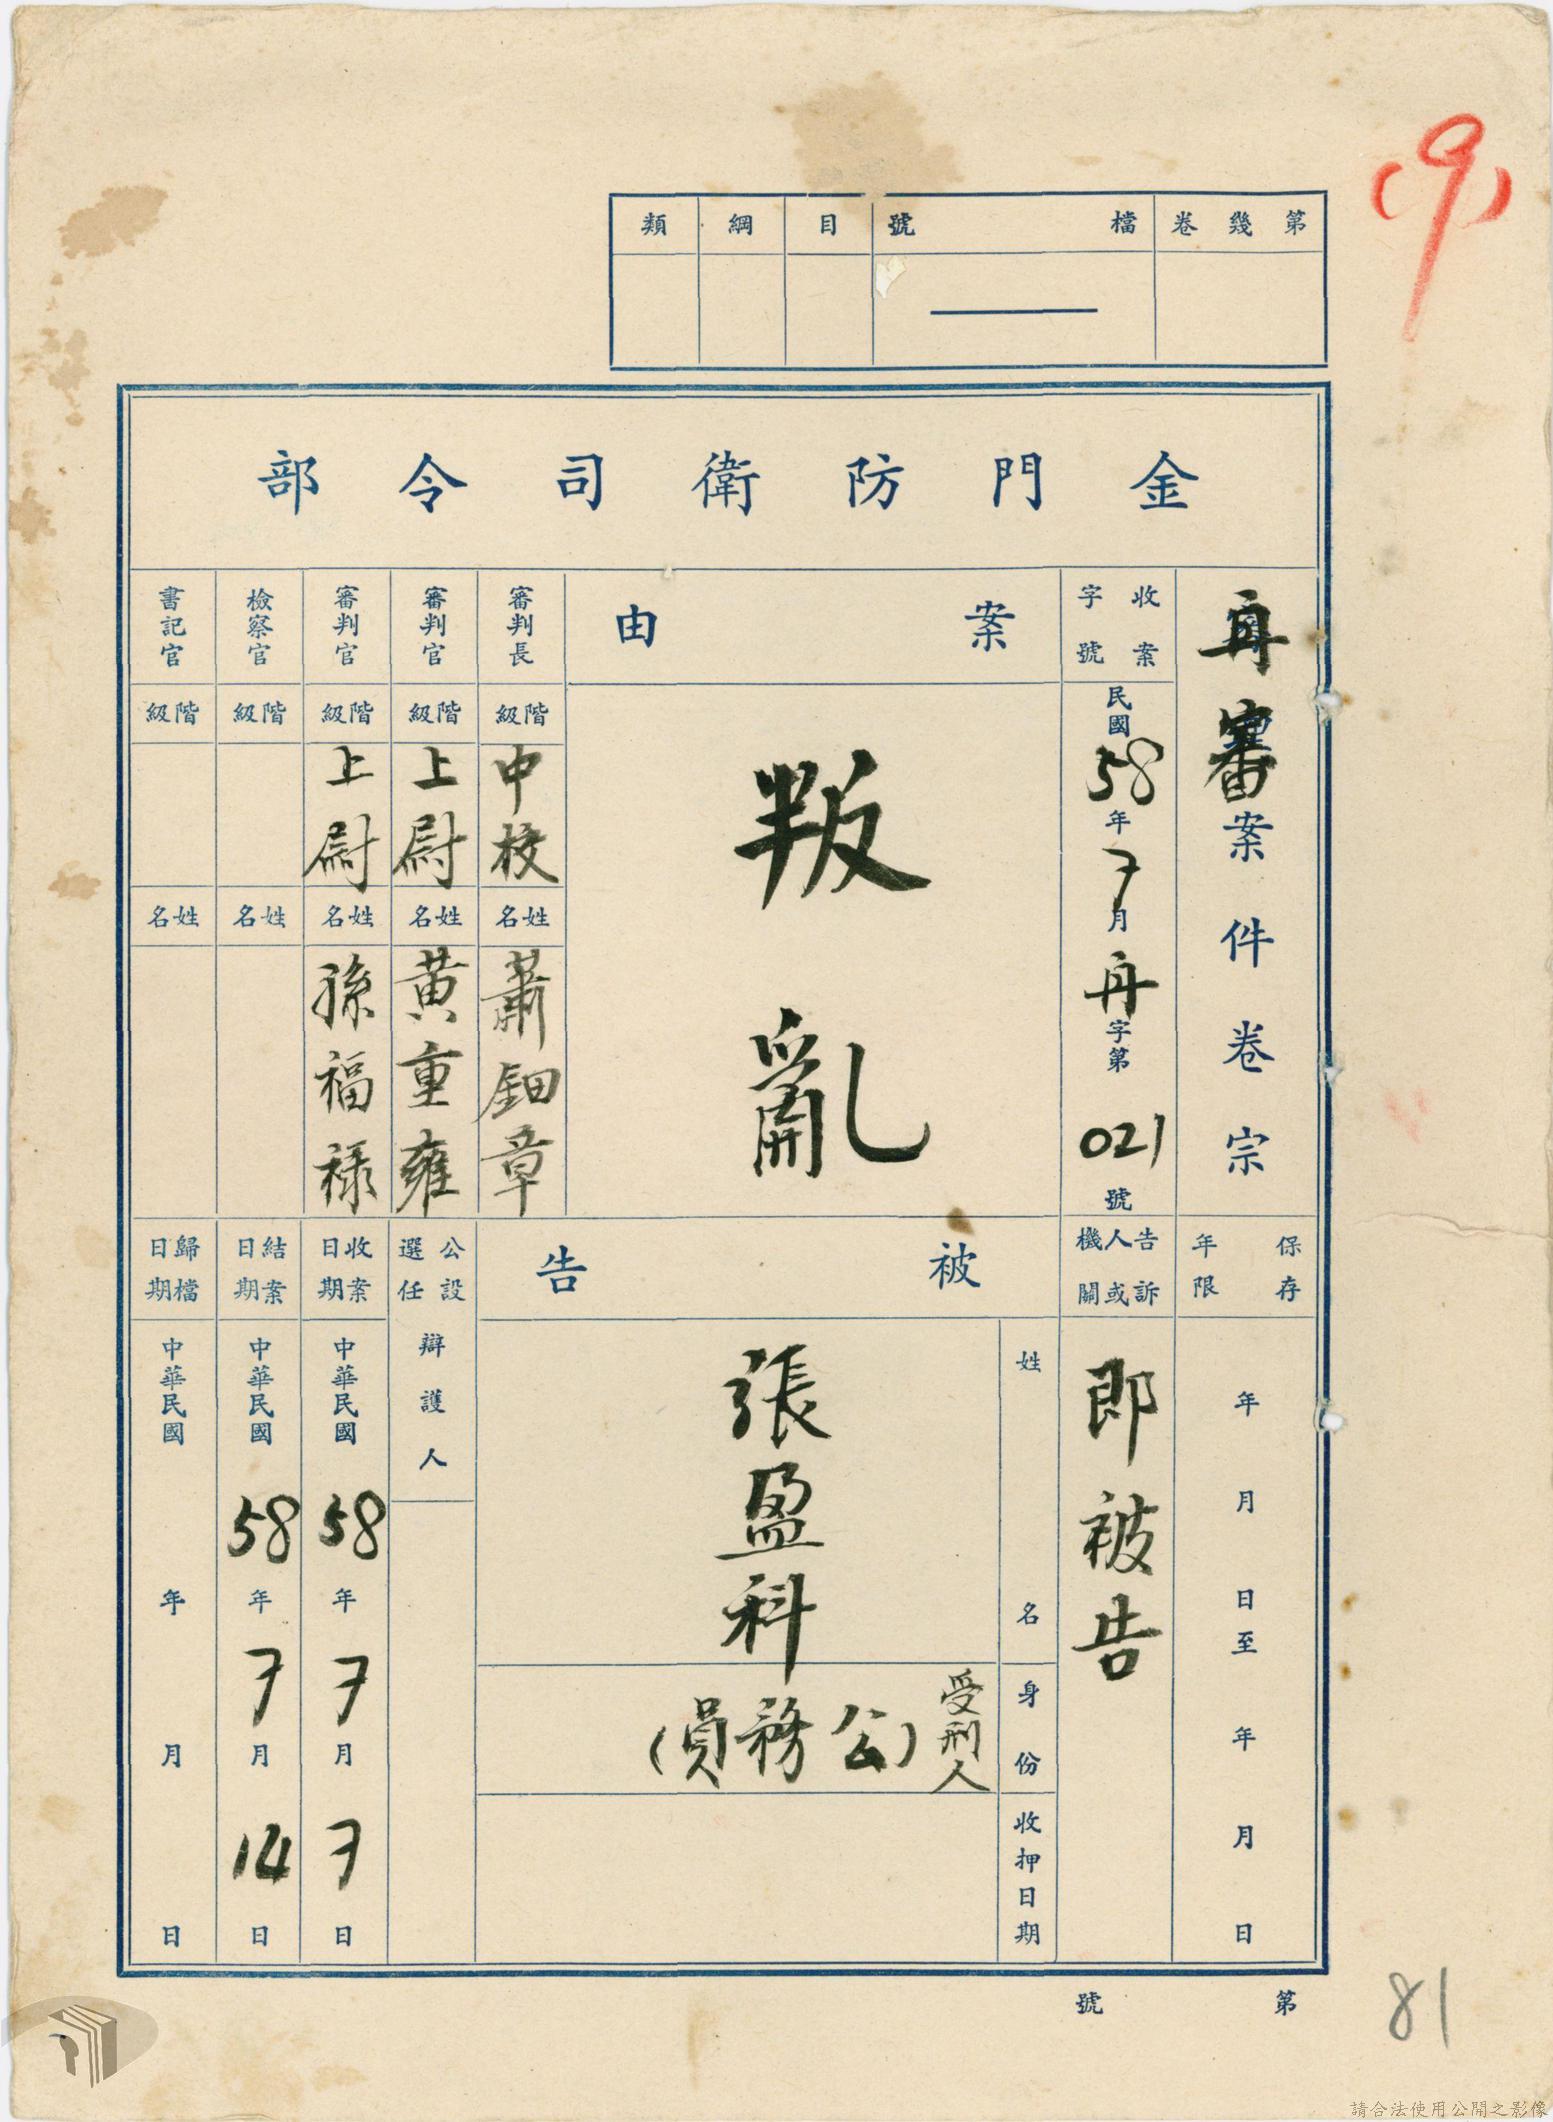 (9)
第幾卷
檔號
目
綱
類
金門防衛司令部
再審案件卷宗
收案字號
民國58年7月再字第021號
案由
叛亂
審判長
階級
中校
姓名
蕭鈿章
審判官
階級
上尉
姓名
黃重雍
審判官
階級
上尉
姓名
孫福祿
檢察官
階級
姓名
書記官
階級
姓名
保存年限
年月日至年月日
告訴人或機關
即被告
被告
姓名
張盈科
身份
受刑人
(公務員)
收押日期
公設選任辯護人
收案日期
中華民國58年7月7日
結案日期
中華民國58年7月14日
歸檔日期
中華民國年月日
第號
81
請合法使用公開之影像